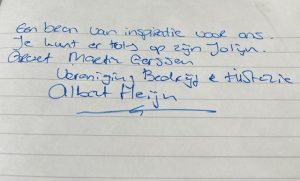 Een bron van inspiratie voor ons.
Je kunt er trots op zijn Jolijn.
Groet Martin Gerssen
Vereniging Bedrijf & Historie
Albert Heijn